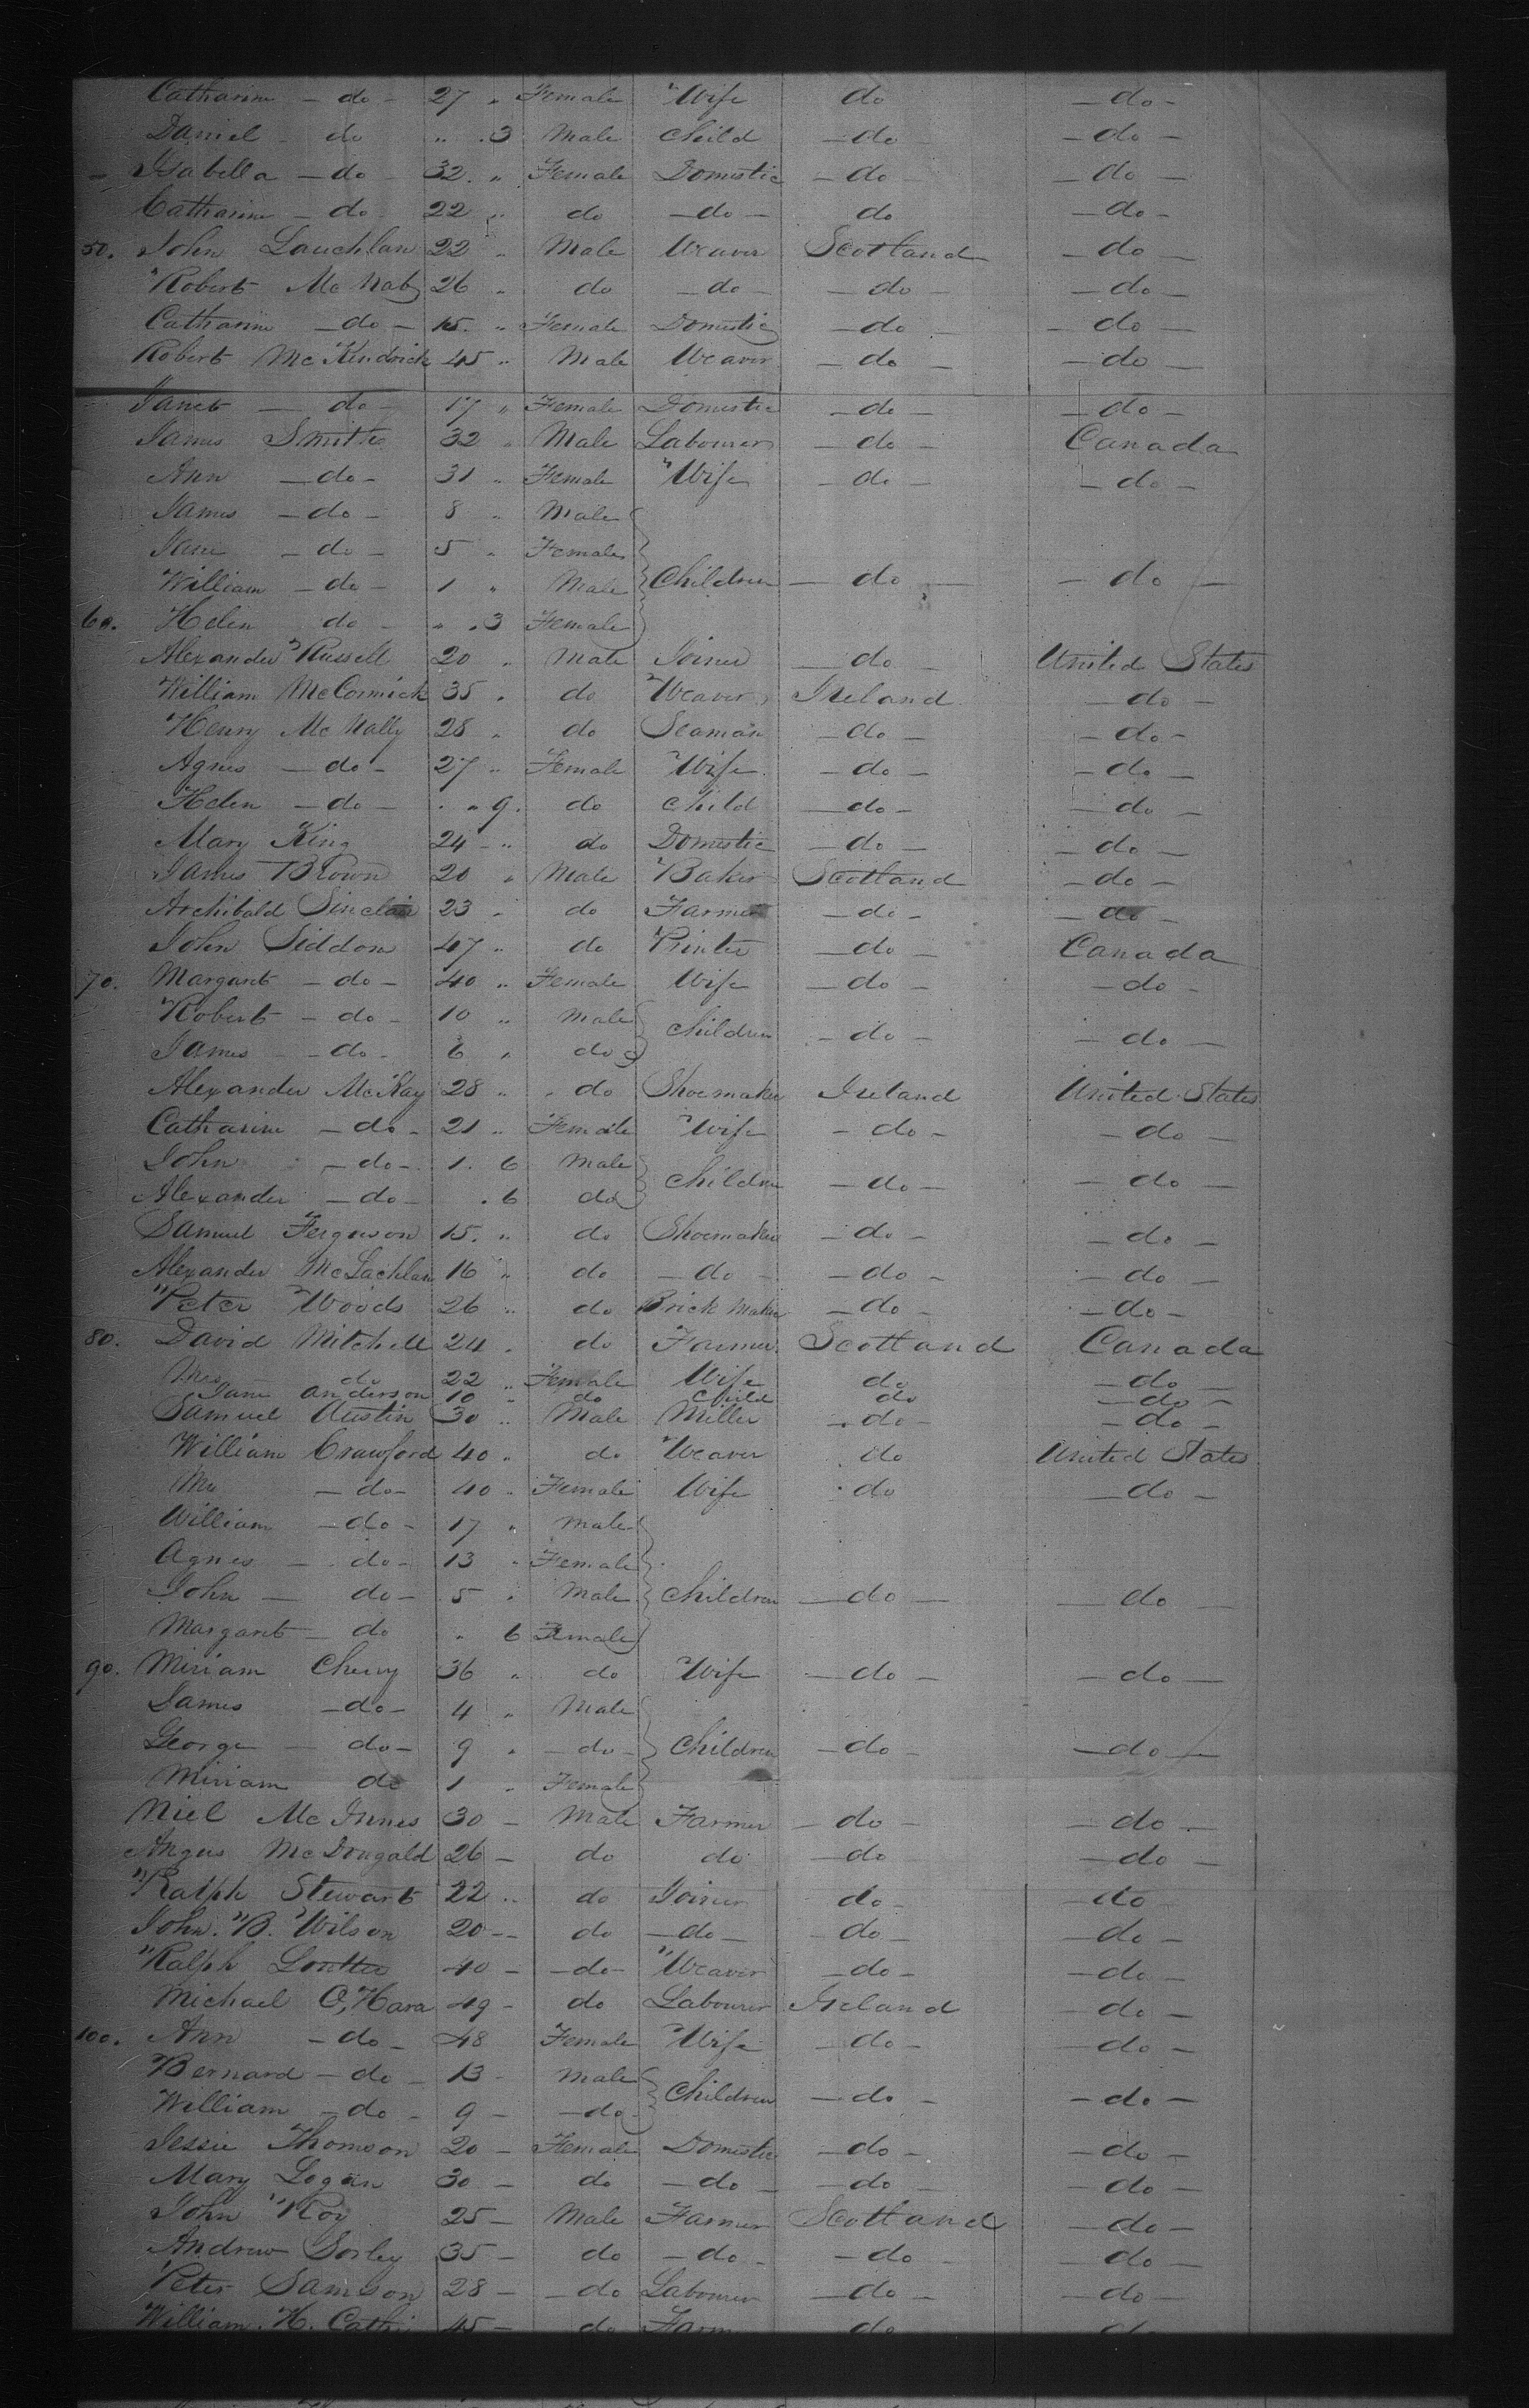 Catharine - do - 27 " Female Wife do - do -
Daniel do " . 3 Male Child - do - - do -
Isabella - do - 32 . " Female Domestic - do - - do -
Catharine - do - 22 " do - do - do - do -
50. John Lauchlan 22 " Male Weaver Scotland - do -
Robert McNab 26 " do - do - - do - - do -
Catharine - do - 15 . " Female Domestic - do - - do -
Robert McKendrick 45 " Male Weaver - do - - do -
Janet - do - 17 " Female Domestic - do - - do -
James Smith 32 " Male Labourer - do - Canada
Ann - do - 31 " Female Wife - do - - do -
James - do - 8 " Male
Jane - do - 5 " Female
William - do - 1 " Male Children - do - - do -
60. Helen do - " . 3 Female
Alexander Russell 20 " Male Joiner - do - United States
William McCormick 35 " do Weaver Ireland - do -
Henry McNally 28 " do Seaman - do - - do -
Agnes - do - 27 " Female Wife - do - - do -
Helen - do - . " 9 . do Child - do - - do -
Mary King 24 - " do Domestic - do - - do -
James Brown 20 " Male Baker Scotland - do -
Archibald Sinclair 23 " do Farmer - do - - do -
John Siddon 47 " do Printer - do - Canada
70. Margaret - do - 40 " Female Wife - do - - do -
Robert - do - 10 " Male Children - do - - do -
James - do - 6 " do
Alexander McKay 28 " do Shoemaker Ireland United States
Catharine - do - 21 " Female Wife - do - - do -
John - do - 1 . 6 Male Children - do - - do -
Alexander - do - . 6 do
Samuel Ferguson 15 . " do Shoemaker - do - - do -
Alexander McLachlan 16 " do - do - - do - - do -
Peter Woods 26 " do Brick Maker - do - - do -
80. David Mitchell 24 . do Farmer Scotland Canada
Mrs do 22 " Female Wife do - do -
Jane Anderson 10 " do Child do - do -
Samuel Austin 30 " Male Miller - do - - do -
William Crawford 40 " do Weaver do United States
Mrs - do - 40 " Female Wife do - do -
William - do - 17 " Male
Agnes - do - 13 " Female
John - do - 5 " Male Children - do - - do -
Margaret - do " 6 Female
90. Miriam Cherry 36 " do Wife - do - - do -
James - do - 4 " Male
George - do - 9 " - do - Children - do - - do -
Miriam do 1 " Female
Niel McInnes 30 - Male Farmer - do - - do -
Angus McDongald 26 - do do - do - do -
Ralph Stewart 22 " do Joiner do - - do
John. B. Wilson 20 - - do - do - - do - - do -
Ralph 40 - - do - Weaver - do - - do -
Michael O,Hara 49 - do Labourer Ireland - do -
100. Ann - do - 48 Female Wife - do - - do -
Bernard - do - 13 - Male Children - do - - do -
William - do - 9 - - do -
Jessie Thomson 20 - Female Domestic - do - - do -
Mary Logan 30 - do - do - - do - - do -
John Roy 25 - Male Farmer Scotland - do -
Andrew Sorley 35 - do - do - - do - - do -
Peter Samson 28 - - do Labourer - do - - do -
William. H. 45 - do Farm do do